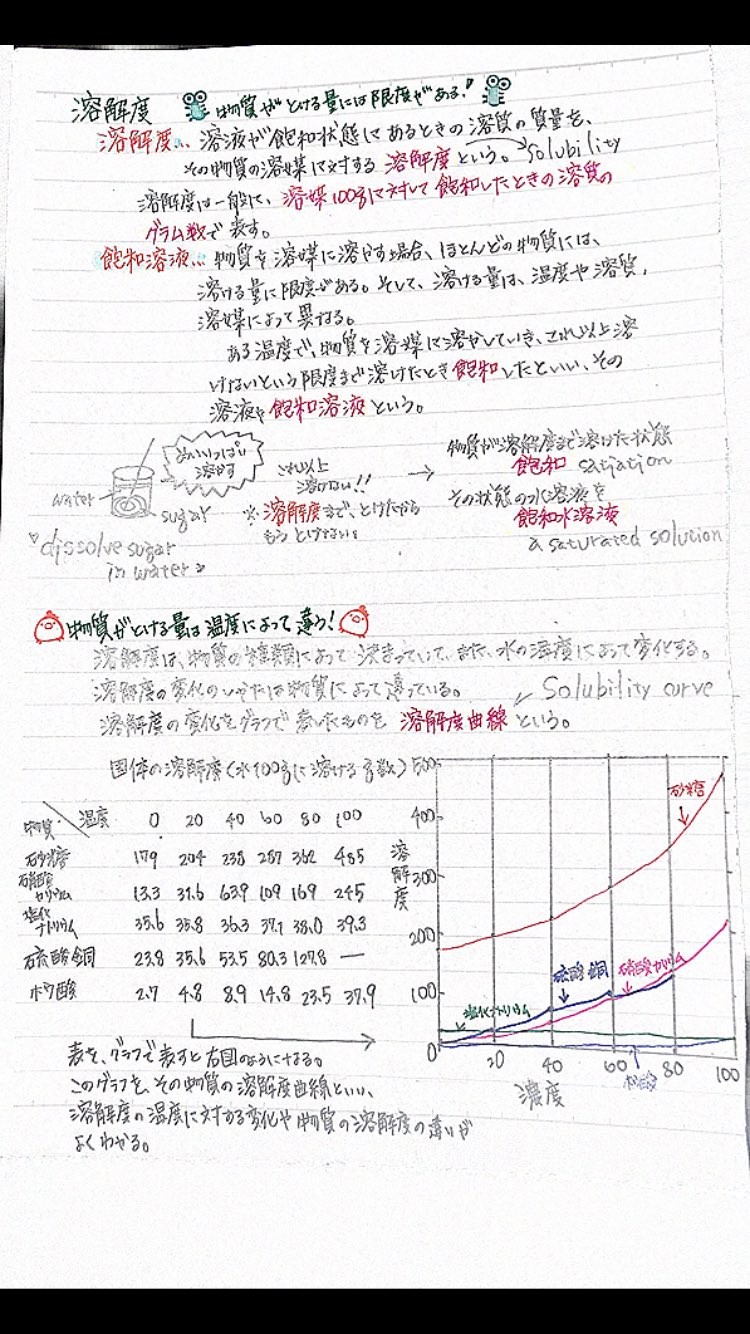 溶解度 物質がとける量には限度がある!
溶解度… 溶液が飽和状態にあるときの溶質の質量を、
その物質の溶媒に対する溶解度という。 solubility
溶解度は一般に、溶媒100gに対して飽和したときの溶質の
グラム数で表す。
飽和溶液… 物質を溶媒に溶かす場合、ほとんどの物質には、
溶ける量に限度がある。そして、溶ける量は、温度や溶質,
溶媒によって異なる。
ある温度で、物質を溶媒に溶かしていき、これ以上溶
けないという限度まで溶けたとき飽和したといい、その
溶液を飽和溶液という。
めいいっぱい
溶かす
water
sugar
dissolve sugar
in water
これ以上
溶けない!!
※溶解度まで、とけたから
もうとけない。
→
物質が溶解度まで溶けた状態
飽和 satiation
その状態の水溶液を
飽和水溶液
a saturated solution
物質がとける量は温度によって違う!
溶解度は、物質の種類によって決まっていて、また、水の温度によって変化する。
溶解度の変化のしかたは物質によって違っている。
Solubility curve
溶解度の変化をグラフで表したものを 溶解度曲線 という。
固体の溶解度(水100gに溶けるg数)
物質 温度 0 20 40 60 80 100
砂糖 179 204 238 287 362 485
硝酸カリウム 13.3 31.6 63.9 109 169 245
塩化ナトリウム 35.6 35.8 36.3 37.1 38.0 39.3
硫酸銅 23.8 35.6 53.5 80.3 127.8 —
ホウ酸 2.7 4.8 8.9 14.8 23.5 37.9
500
400
300
200
100
0
溶解度
砂糖
硫酸銅
硝酸カリウム
塩化ナトリウム
20 40 60 80 100
濃度
表を、グラフで表すと右図のようになる。
このグラフを、その物質の溶解度曲線といい、
溶解度の温度に対する変化や物質の溶解度の違いが
よくわかる。